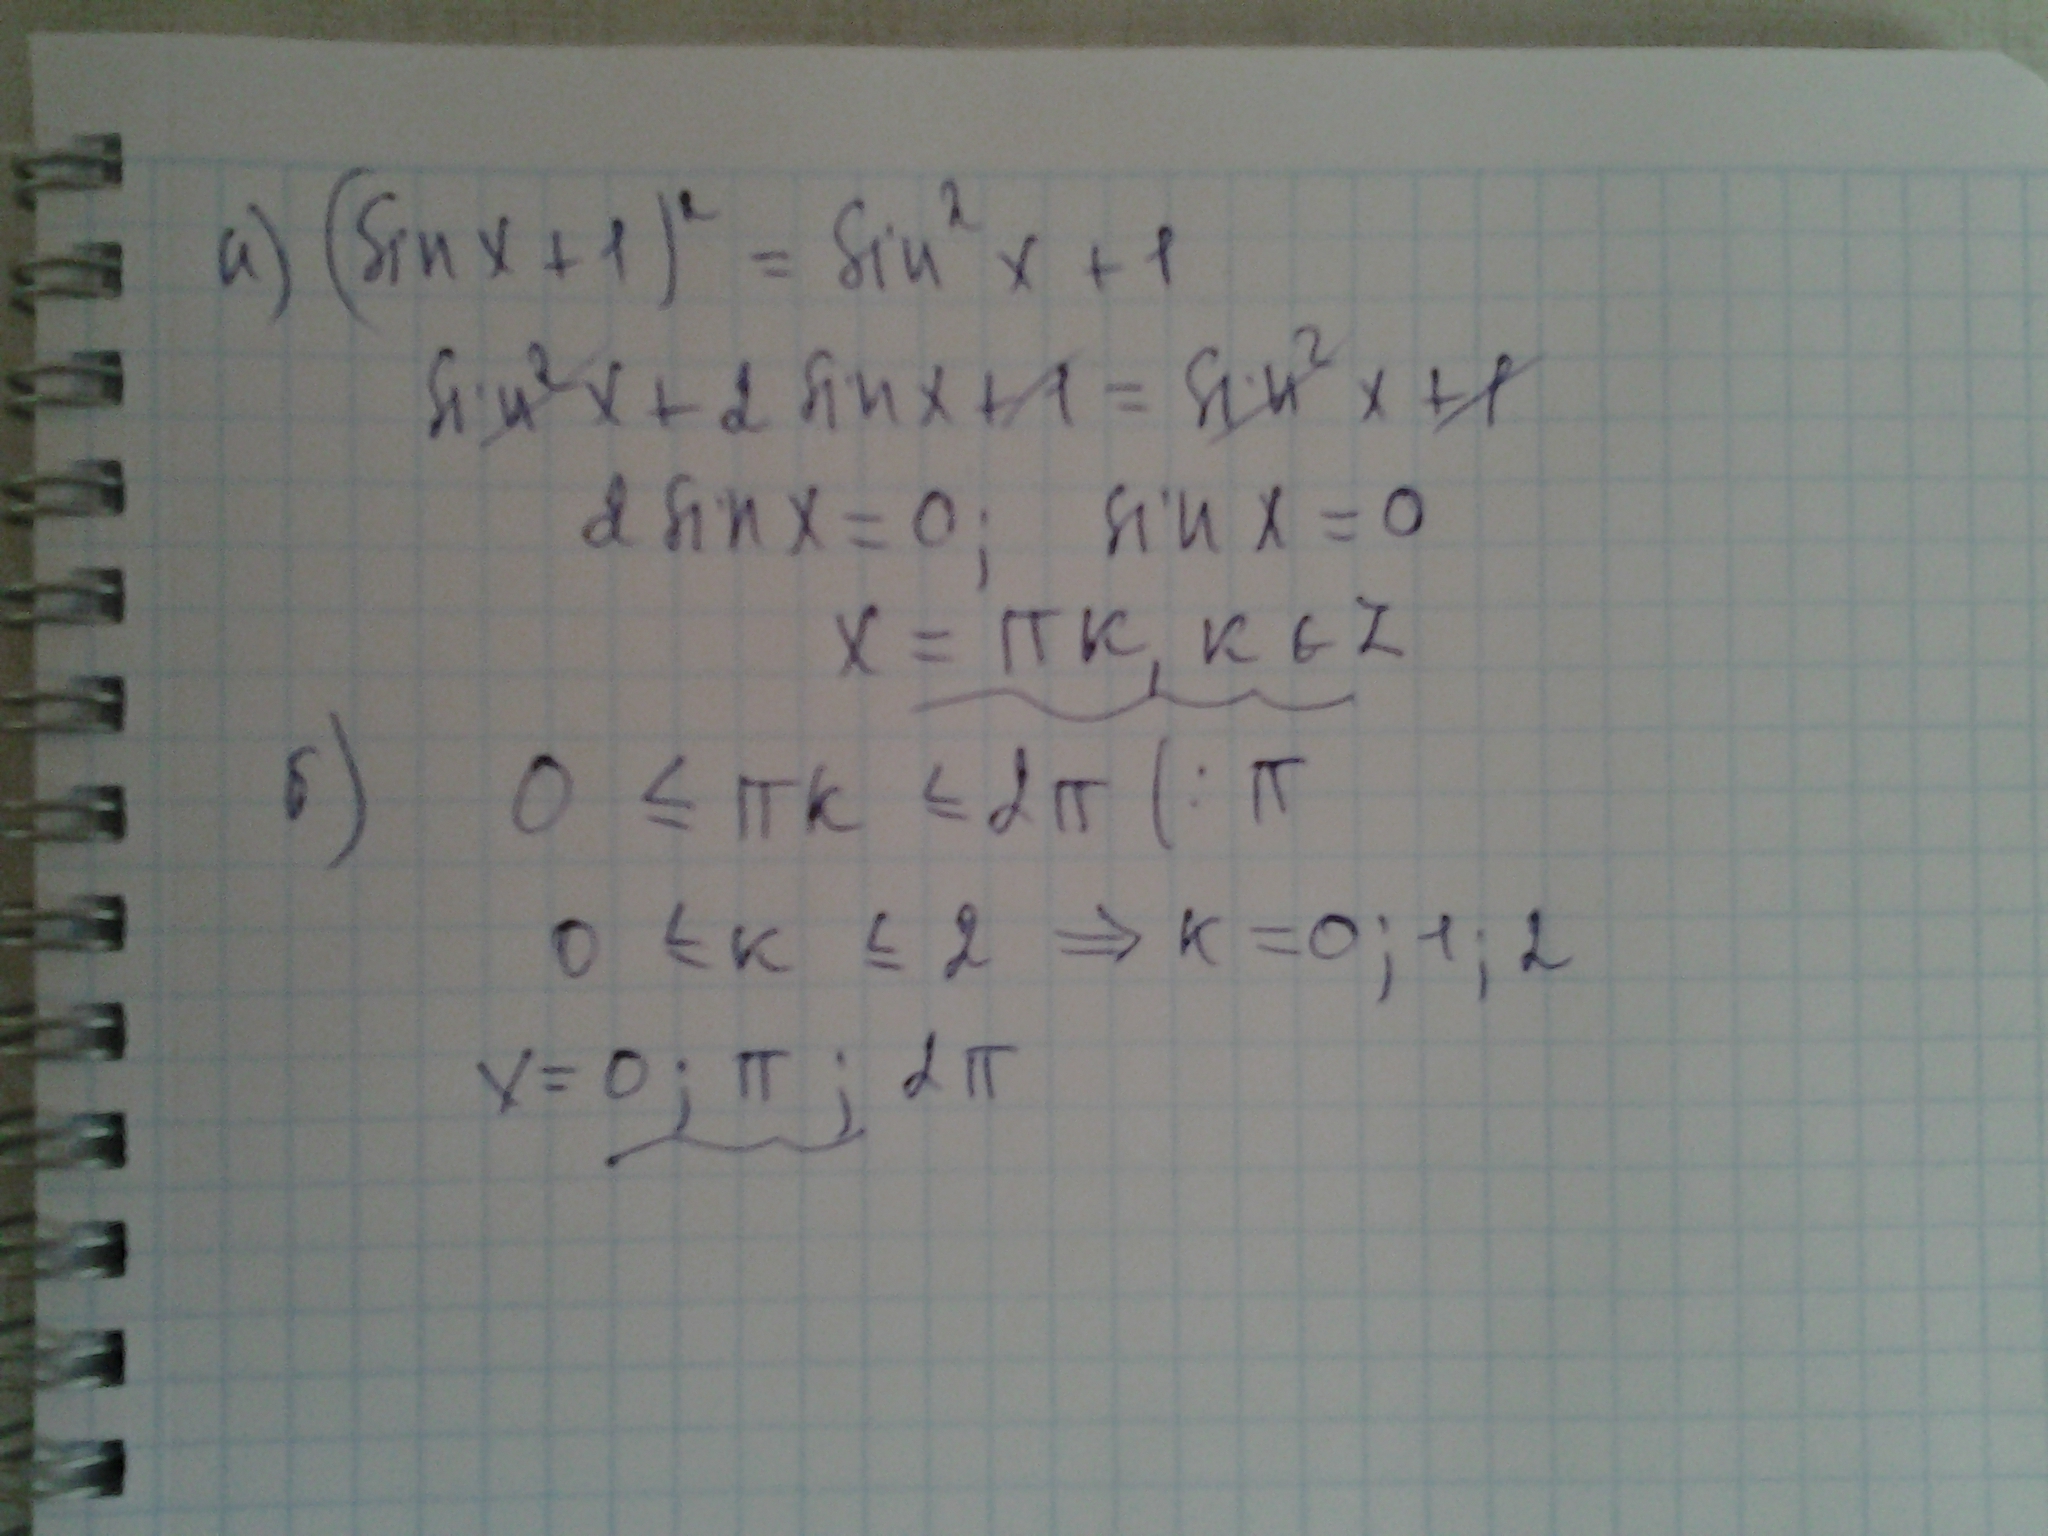 а) (sin x + 1)² = sin² x + 1
sin² x + 2 sin x + 1 = sin² x + 1
2 sin x = 0; sin x = 0
x = πк, к ∈ Z
б) 0 ≤ πк ≤ 2π (: π
0 ≤ к ≤ 2 ⇒ к = 0; 1; 2
x = 0; π; 2π